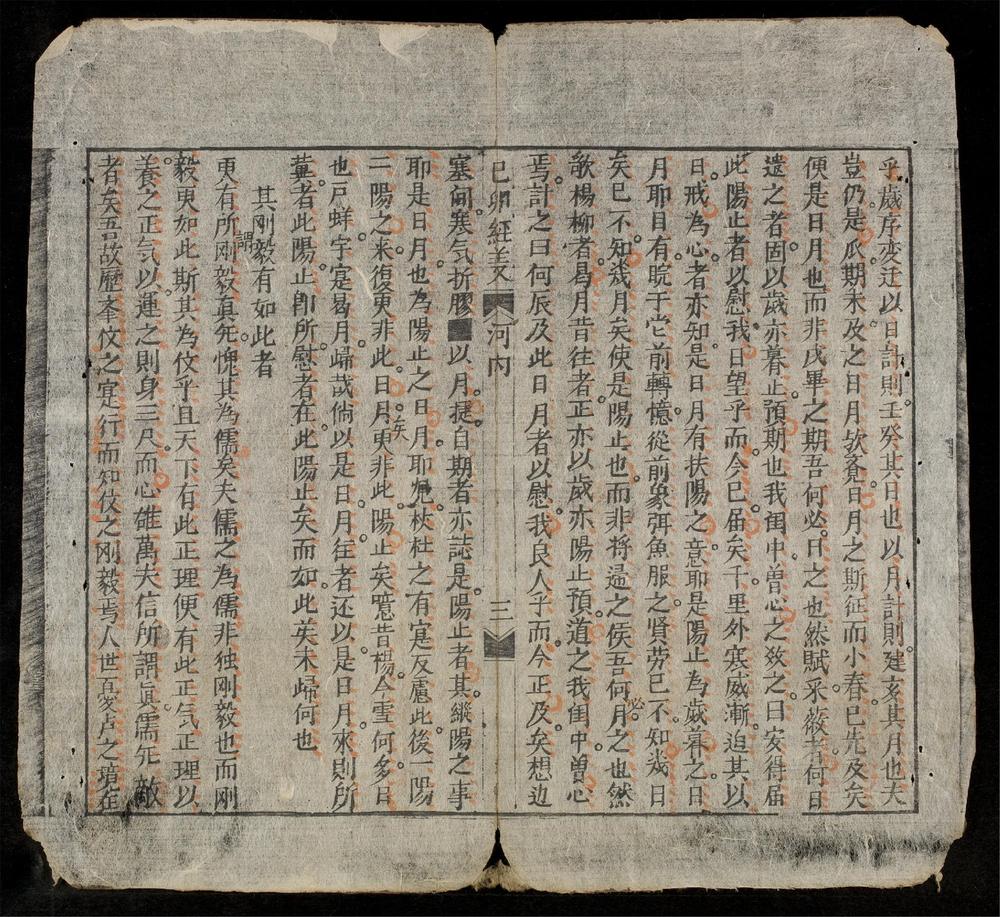 乎歲序变迁以日計則壬癸其日也以月計則建亥其月也夫
豈仍是瓜期未及之日月欤奁日月之斯征而小春已先及矣
便是日月也而非戍畢之期吾何必日之也然賦采薇者何日
遣之者固以歲亦暮止預期也我闺中曽心之数之曰安得届
此陽止者以慰我日望乎而今已届矣千里外寒威漸迫其以
日戒為心者亦知是日月有扶陽之意耶是陽止為歲暮之日
月耶目有睆于它前轉憶從前象弭魚服之賢劳已不知幾日
矣已不知幾月矣使是陽止也而非将還之侯吾何必月之也然
歌楊柳者曷月昔往者正亦以歲亦陽止預道之我闺中曽心
焉計之曰何辰及此日月者以慰我良人乎而今正及矣想边
塞间寒气折膠以月捷自期者亦誌是陽止者其纵陽之事
耶是日月也為陽止之日月耶杕杜之有寔反慮此後一陽
二陽之来復更非此日月矣更非此陽止矣噫昔楊今雪何多日
也戸蛘字寔曷月歸哉倘以是日月往者还以是日月來則所
萋者此陽止即所慰者在此陽止矣而如此矣未歸何也
其刚毅有如此者
更有所謂刚毅真旡愧其為儒矣夫儒之為儒非独刚毅也而刚
毅更如此斯其為伩乎且天下有此正理便有此正气正理以
養之正气以運之則身三尺而心雄萬夫信所謂眞儒旡敵
者矣吾故歷李伩之寔行而知伩之刚毅焉人世憂卢之境在
己卯經義
河内
三